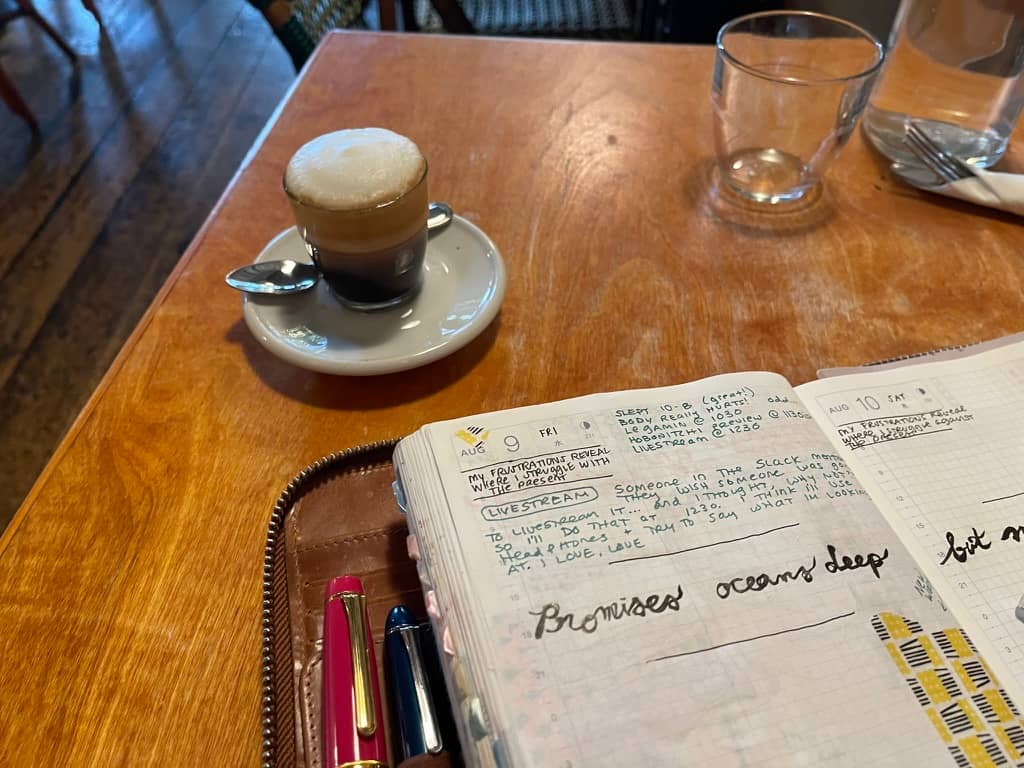 AUG 9 FRI
MY FRUSTRATIONS REVEAL
WHERE I STRUGGLE WITH
THE PRESENT
SLEPT 10-8 (great!)
BODY REALLY HURTS!
LE GAMIN @ 1030
HOBONICHI PREVIEW @ 1130
LIVESTREAM @ 1230
LIVESTREAM SOMEONE IN THE SLACK
THEY WISH SOMEONE WAS
TO LIVESTREAM IT... AND I THOUGHT, WHY NOT?
SO I'LL DO THAT AT 1230. I THINK I'LL USE
HEADPHONES + TRY TO SAY WHAT I'M LOOKING
AT. I LOVE, LOVE
Promises oceans deep
AUG 10 SAT
MY FRUSTRATIONS REVEAL
WHERE I STRUGGLE AGAINST
THE PRESENT
but